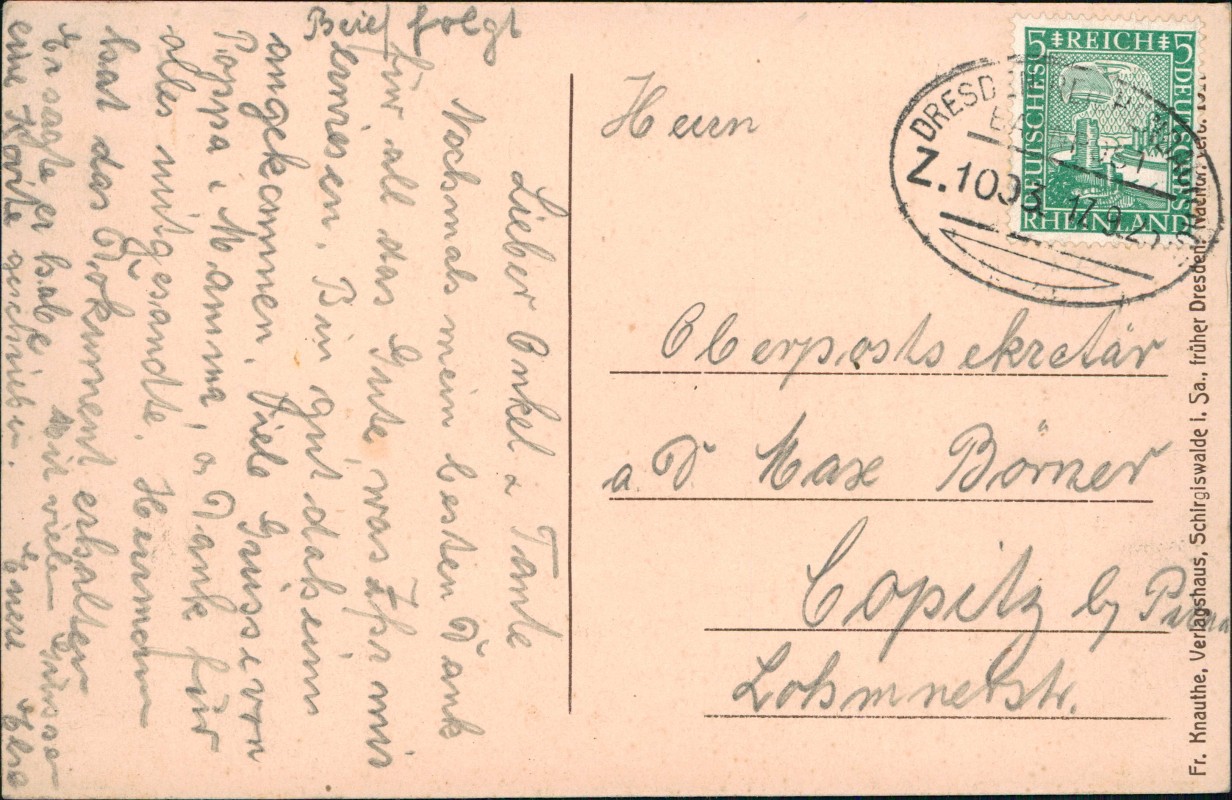 Brief folgt
Lieber Onkel & Tante
Nochmals mein besten Dank
für all das Gute, was Ihr mir
erwiesen. Bin gut daheim
angekommen. Viele Grüsse von
Pappa & Mamma, & Dank für
alles mitgesandte. Hermann
hat das Dokument erhalten
Er sagte er habe mit viele Grüsse
eine Karte geschrieben. Euere Elsa
Herrn
Oberpostsekretär
a. D Max Börner
Copitz b/ Pirna
Lohmnerstr.
5 REICH 5
DEUTSCHES
DEUTSCHES
RHEINLAND
DRESDEN
Z. 1093 17.9.25
Fr. Knauthe, Verlagshaus, Schirgiswalde i. Sa., früher Dresden. Nachdr. verb.